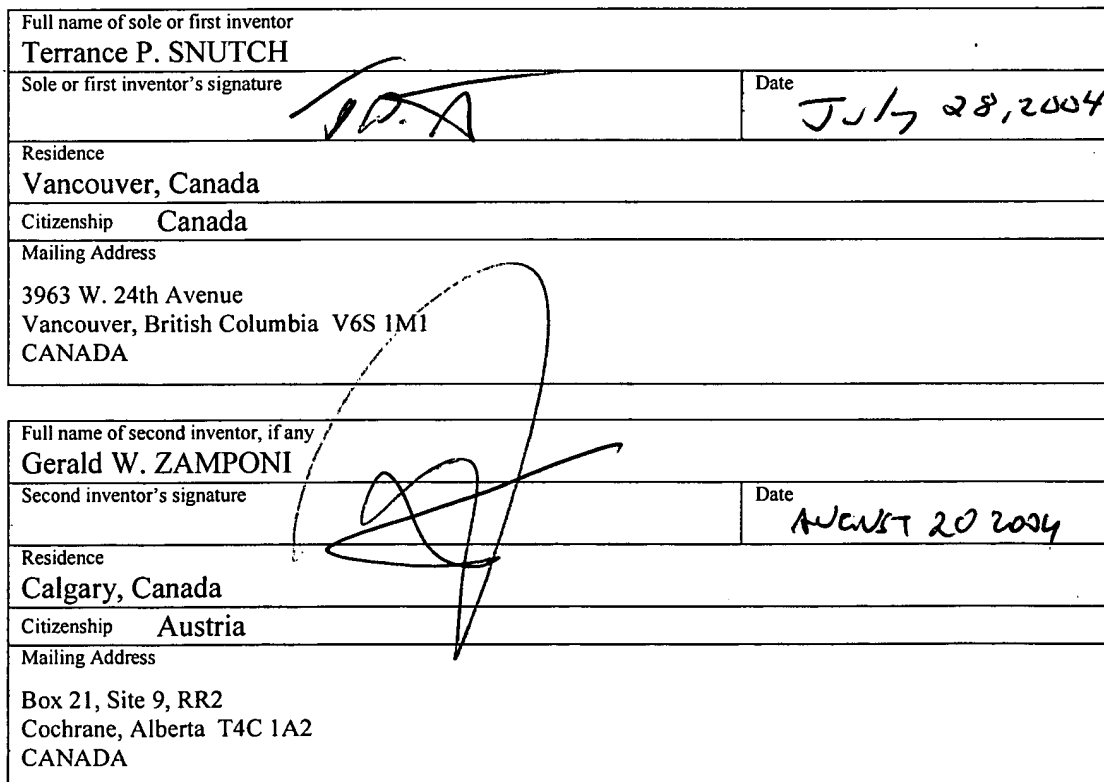 Full name of sole or first inventor
Terrance P. SNUTCH
Sole or first inventor's signature
Date
July 28, 2004
Residence
Vancouver, Canada
Citizenship Canada
Mailing Address
3963 W. 24th Avenue
Vancouver, British Columbia V6S 1M1
CANADA
Full name of second inventor, if any
Gerald W. ZAMPONI
Second inventor's signature
Date
AUGUST 20 2004
Residence
Calgary, Canada
Citizenship Austria
Mailing Address
Box 21, Site 9, RR2
Cochrane, Alberta T4C 1A2
CANADA